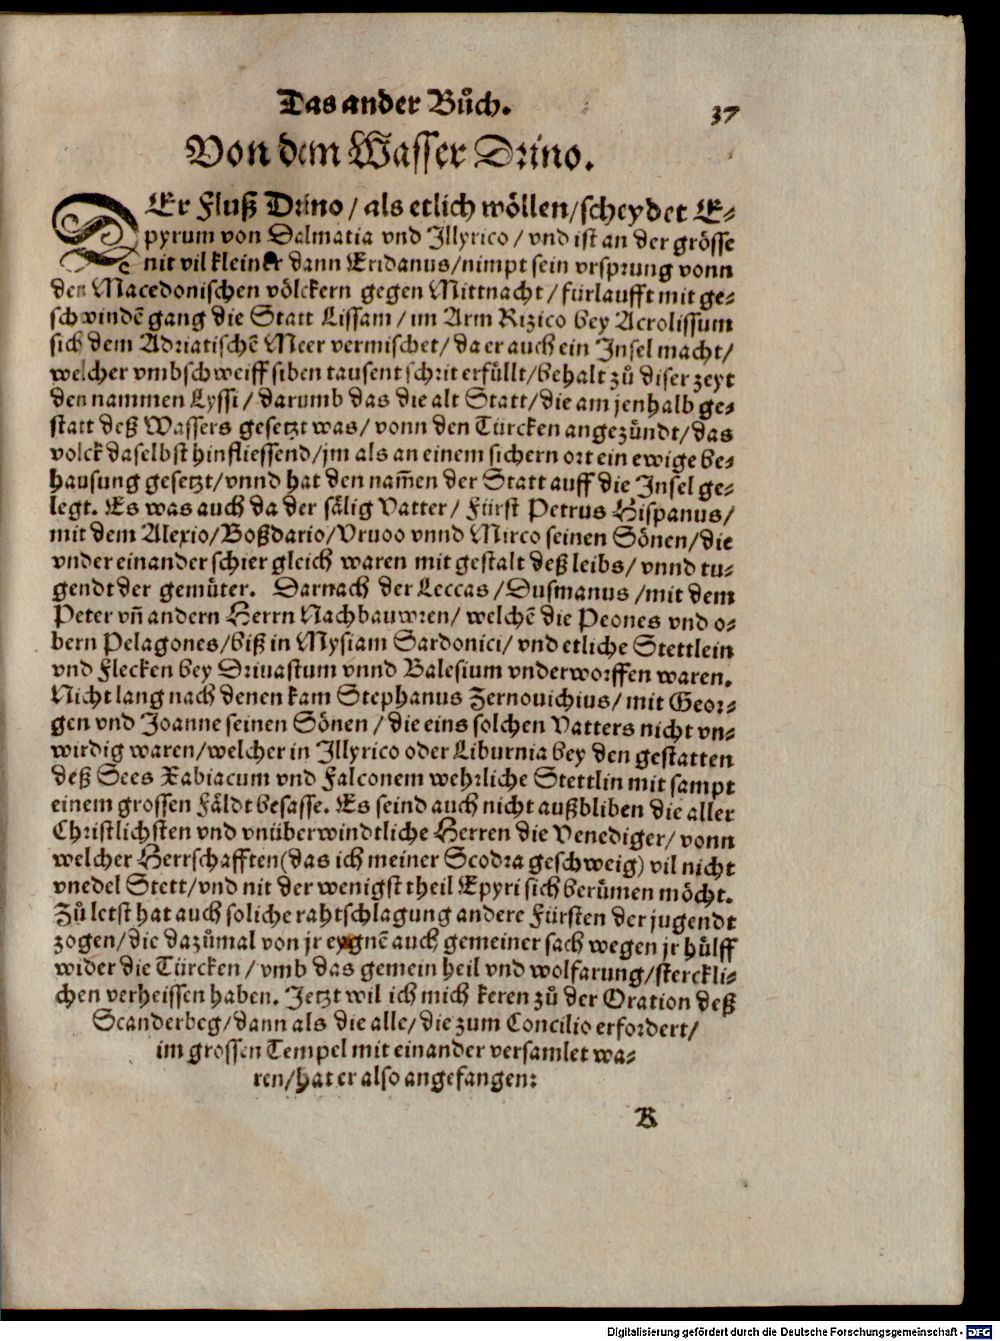 Das ander Bůch.
37
Von dem Wasser Drino.
DEr Fluß Drino / als etlich wöllen/scheydet E-
pyrum von Dalmatia vnd Jllyrico / vnd ist an der grösse
nit vil kleiner dann Eridanus/nimpt sein vrsprung vonn
den Macedonischen völckern gegen Mittnacht / fürlaufft mit ge-
schwindē gang die Statt Lissam / im Arm Rizico bey Acrolissum
sich dem Adriatischē Meer vermischet/ da er auch ein Jnsel macht/
welcher vmbschweiff siben tausent schrit erfüllt/behalt zů diser zeyt
den nammen Lyssi / darumb das die alt Statt/die am jenhalb ge-
statt deß Wassers gesetzt was/ vonn den Türcken angezündt/das
volck daselbst hinfliessend/jm als an einem sichern ort ein ewige be-
hausung gesetzt/vnnd hat den nam̄en der Statt auff die Jnsel ge-
legt. Es was auch da der sälig Vatter / Fürst Petrus Hispanus/
mit dem Alexio/Boßdario/Vruoo vnnd Mirco seinen Sönen/die
vnder einander schier gleich waren mit gestalt deß leibs/ vnnd tu-
gendt der gemüter. Darnach der Leccas / Dusmanus /mit dem
Peter vn̄ andern Herrn Nachbauwren/ welchē die Peones vnd o-
bern Pelagones/biß in Mysiam Sardonici/ vnd etliche Stettlein
vnd Flecken bey Driuastum vnnd Balesium vnderworffen waren.
Nicht lang nach denen kam Stephanus Zernouichius/ mit Geor-
gen vnd Joanne seinen Sönen / die eins solchen Vatters nicht vn-
wirdig waren/welcher in Jllyrico oder Liburnia bey den gestatten
deß Sees Xabiacum vnd Falconem wehrliche Stettlin mit sampt
einem grossen Fäldt besasse. Es seind auch nicht außbliben die aller
Christlichsten vnd vnüberwindtliche Herren die Venediger/ vonn
welcher Herrschafften(das ich meiner Scodra geschweig) vil nicht
vnedel Stett/vnd nit der wenigst theil Epyri sich berümen möcht.
Zů letst hat auch soliche rahtschlagung andere Fürsten der jugendt
zogen/die dazůmal von jr eygnē auch gemeiner sach wegen jr hülff
wider die Türcken / vmb das gemein heil vnd wolfarung/sterckli-
chen verheissen haben. Jetzt wil ich mich keren zů der Oration deß
Scanderbeg/dann als die alle/die zum Concilio erfordert/
im grossen Tempel mit einander versamlet wa-
ren/hat er also angefangen:
K
Digitalisierung gefördert durch die Deutsche Forschungsgemeinschaft - DFG